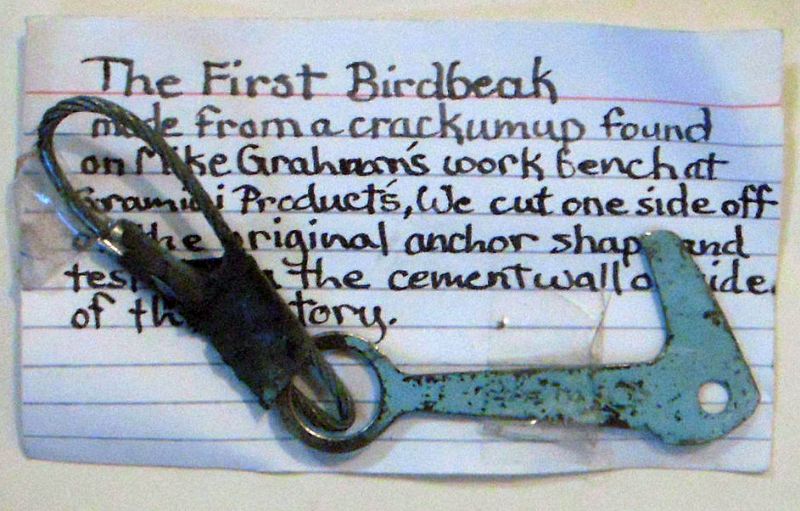 The First Birdbeak
made from a crackumup found
on Mike Graham's work bench at
Gramicci Products, We cut one side off
of the original anchor shape and
the cement wall outside
of the factory.